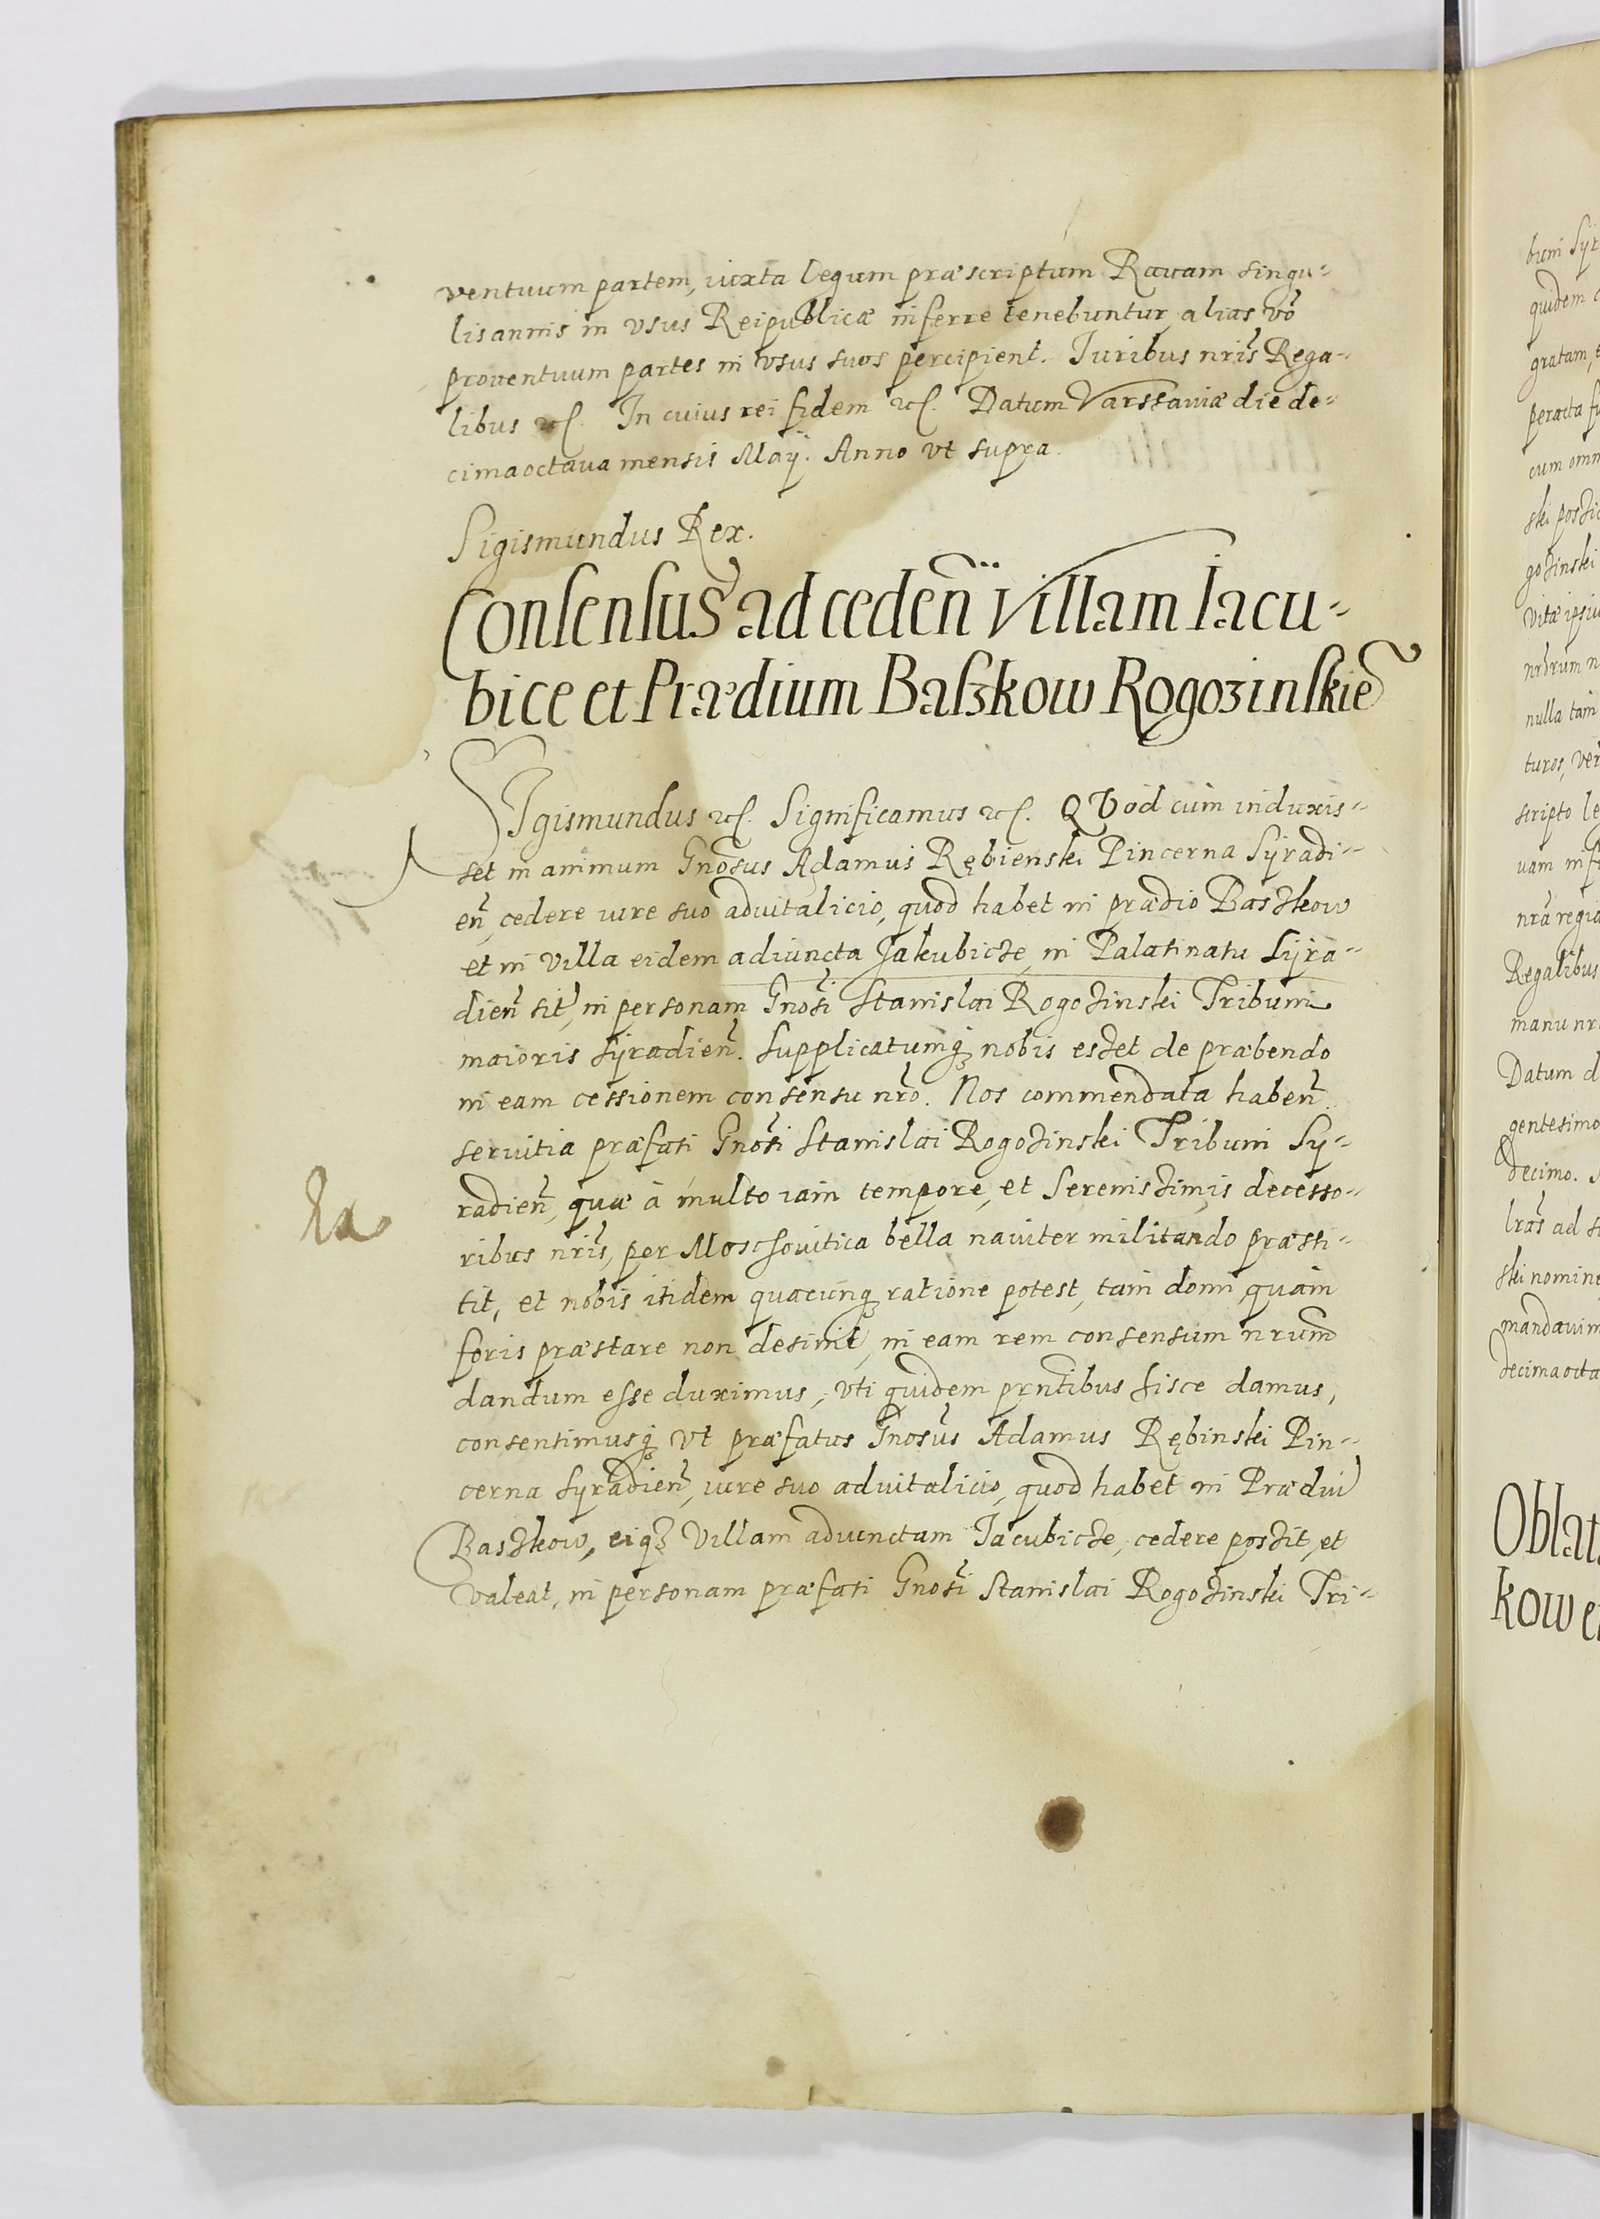 ventuum partem, iuxta legum præscriptum Rauam singu-
lis annis in vsus Reipublicæ inferre tenebuntur alias vō
prouentuum partes in vsus suos percipient. Iuribus nrīs Rega-
libus etc. In cuius rei fidem etc. Datum Varssauiæ die de-
cimaoctaua mensis Maij. Anno vt supra.
Sigismundus Rex.
Consensus ad ceden̄ Villam Iacu-
bice et Prædium Baszkow Rogozinskie
SIgismundus etc. Significamus etc. QVod cum induxis-
set in animum Gnōsus Adamus Rębienski Pincerna Syradi-
en̄, cedere iure suo aduitalicio, quod habet in prædio Baszkow
et in villa eidem adiuncta Jakubicze, in Palatinatu Syra-
dien̄ sit, in personam Gnōsi Stanislai Rogozinski Tribuni
maioris Syradien̄. Supplicatumq3 nobis esset de præbendo
in eam cessionem consensu nrō. Nos commendata haben̄
seruitia præfati Gnōsi Stanislai Rogozinski Tribuni Sy-
radien̄, quæ à multo iam tempore, et Serenissimis decesso-
ribus nrīs, per Moschouitica bella nauiter militando præsti-
tit, et nobis itidem quacunq3 ratione potest, tam domi quam
foris præstare non desinit, in eam rem consensum nrūm
dandum esse duximus, vti quidem prn̄tibus hisce damus,
consentimusq3 vt præfatus Gnōsus Adamus Rębinski Pin-
cerna Syradien̄, iure suo aduitalicio, quod habet in Prædiu
Baszkow, eiq3 Villam adiunctam Iacubicze, cedere possit, et
valeat, in personam præfati Gnōsi Stanislai Rogozinski Tri-
quidem
gratam,
peracta
cum omn
ski possi
gozinski
vitæ ipsiu
nrōrum n
nulla tam
turos, ver
scripto le
uam inf
nrā regia
Regalibus
manu nr
Datum d
gentesimo
decimo.
lrās ad s
ski nomine
mandauim
decimaocta
Oblat
kow et